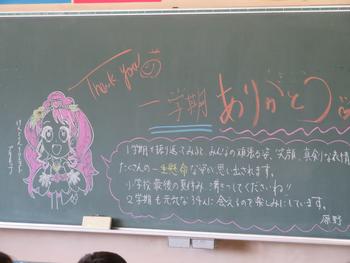 Thank you!
一学期 ありがとう
1学期を振り返ってみると、みんなの頑張る姿、笑顔、真剣な表情
たくさんの一生懸命な姿が思い出されます。
小学校最後の夏休み、満きつしてくださいね!!
2学期も元気な34人に会えるのを楽しみにしています。
原野